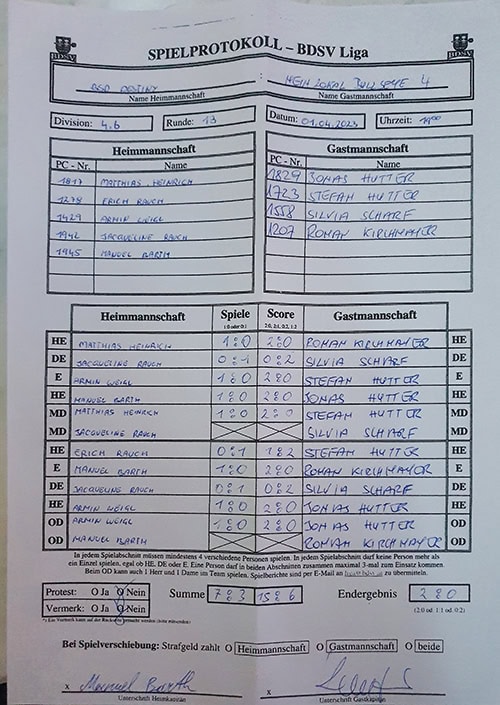 SPIELPROTOKOLL – BDSV Liga
BDSV
BDSV
BSD DESTINY : MEIN LOKAL BULLSEYE 4
Name Heimmannschaft Name Gastmannschaft
Division: 4.b Runde: 13 Datum: 01.04.2023 Uhrzeit: 19:00
Heimmannschaft Gastmannschaft
PC - Nr. Name PC - Nr. Name
1817 MATTHIAS HEINRICH 1829 JONAS HUTTER
1278 ERICH RAUCH 1723 STEFAN HUTTER
1429 ARMIN WEIGL 1558 SILVIA SCHARF
1942 JACQUELINE RAUCH 1207 ROMAN KIRCHMAYER
1945 MANUEL BARTH
Heimmannschaft Spiele Score Gastmannschaft
1:0 oder 0:1 2:0, 2:1, 0:2, 1:2
HE MATTHIAS HEINRICH 1:0 2:0 ROMAN KIRCHMAYER HE
DE JACQUELINE RAUCH 0:1 0:2 SILVIA SCHARF DE
E ARMIN WEIGL 1:0 2:0 STEFAN HUTTER E
HE MANUEL BARTH 1:0 2:0 JONAS HUTTER HE
MD MATTHIAS HEINRICH 1:0 2:0 STEFAN HUTTER MD
MD JACQUELINE RAUCH SILVIA SCHARF MD
HE ERICH RAUCH 0:1 1:2 STEFAN HUTTER HE
E MANUEL BARTH 1:0 2:0 ROMAN KIRCHMAYER E
DE JACQUELINE RAUCH 0:1 0:2 SILVIA SCHARF DE
HE ARMIN WEIGL 1:0 2:0 JONAS HUTTER HE
OD ARMIN WEIGL 1:0 2:0 JONAS HUTTER OD
OD MANUEL BARTH ROMAN KIRCHMAYER OD
In jedem Spielabschnitt müssen mindestens 4 verschiedene Personen spielen. In jedem Spielabschnitt darf keine Person mehr als
ein Einzel spielen, egal ob HE, DE oder E. Eine Person darf in beiden Abschnitten zusammen maximal 3-mal zum Einsatz kommen.
Beim OD kann auch 1 Herr und 1 Dame im Team spielen. Spielberichte sind per E-Mail an zu übermitteln.
Protest: O Ja O Nein Summe 7:3 15:6 Endergebnis 2:0
Vermerk: O Ja O Nein (2:0 od. 1:1 od. 0:2)
*) Ein Vermerk kann auf der Rückseite gemacht werden (bitte mitsenden)
Bei Spielverschiebung: Strafgeld zahlt O Heimmannschaft O Gastmannschaft O beide
x Manuel Barth x
Unterschrift Heimkapitän Unterschrift Gastkapitän